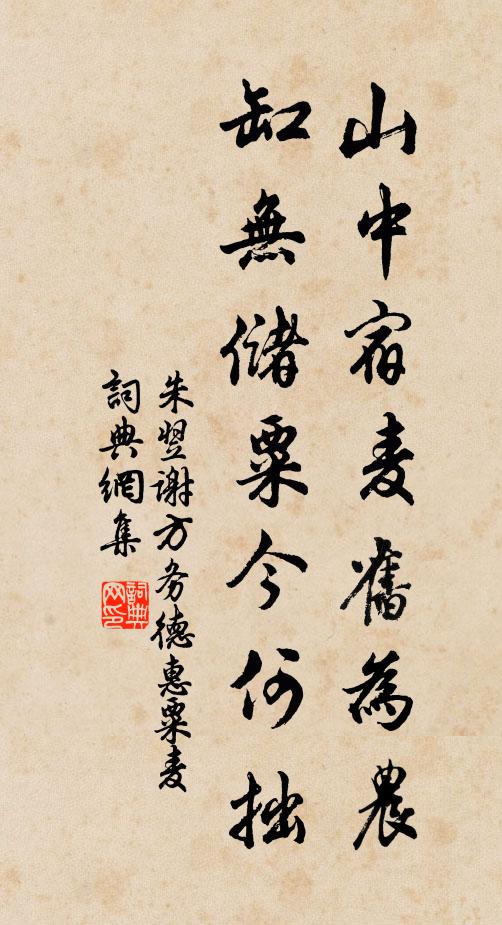 山中宿麦舊為農
缸無儲粟今何拙
朱翌謝方务德惠粟麦
詞典網集
詞典
网印